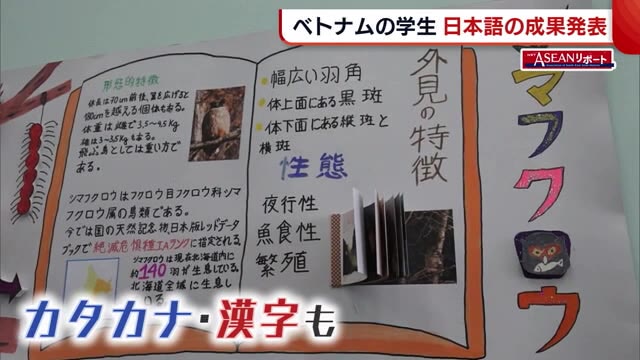 ベトナムの学生 日本語の成果発表
ASEANリポート
シマフクロウ
外見の特徴
形態的特徴
体長は70cm前後、翼を広げると
180cmを越える個体もある。
体重は雌で3.5〜4.5kg
雄は3〜3.5kgもある。
飛ぶ鳥としては重い方で
ある。
シマフクロウはフクロウ目フクロウ科シマ
フクロウ属の鳥類である。
今では国の天然記念物、日本版レッドデータ
ブックで絶滅危惧種IAランクに指定される。
シマフクロウは現在北海道内に
約140羽が生息している。
北海道全域に生息し
ている。
幅広い羽角
体上面にある黒斑
体下面にある縦斑と
横斑
性態
夜行性
魚食性
繁殖
カタカナ・漢字も